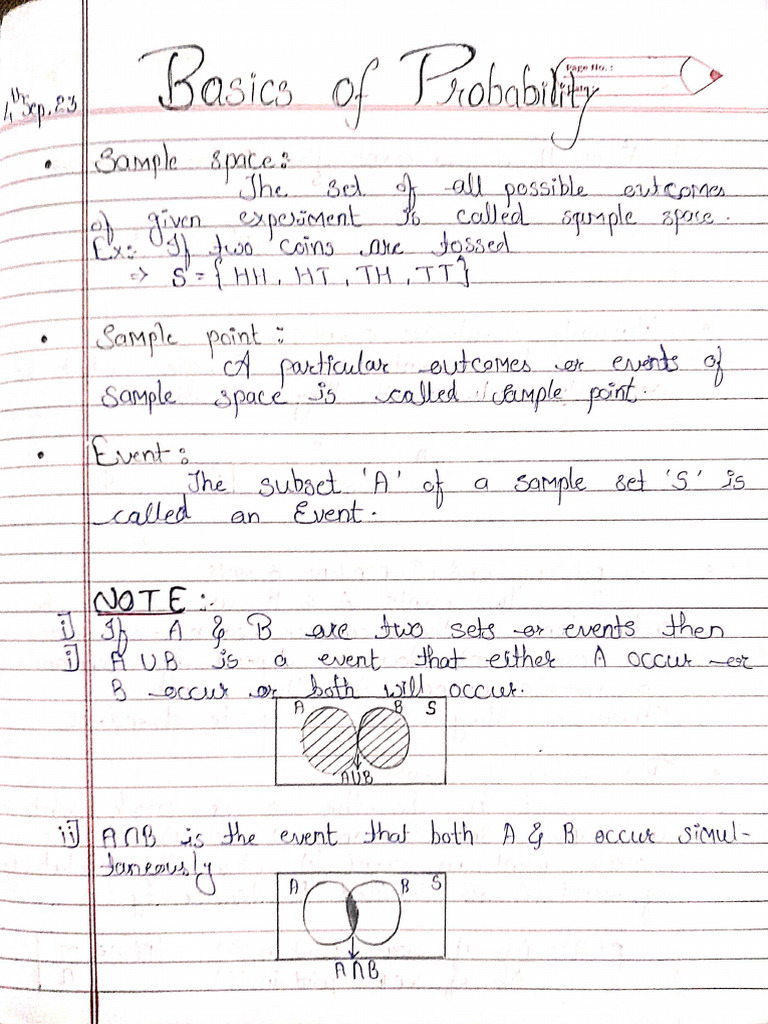 Basics of Probability
Page No.:
4th Sep, 23
• Sample space:
The set of all possible outcomes
of given experiment is called sqmple space.
Ex:- If two coins are tossed
=> S = {HH, HT, TH, TT}
• Sample point:
A particular outcomes or events of
sample space is called sample point.
• Event:
The subset 'A' of a sample set 'S' is
called an Event.
NOTE:-
i] If A & B are two sets or events then
i] A U B is a event that either A occur or
B occur or both will occur.
A B S
AUB
ii] A∩B is the event that both A & B occur simul-
taneously
A B S
A∩B